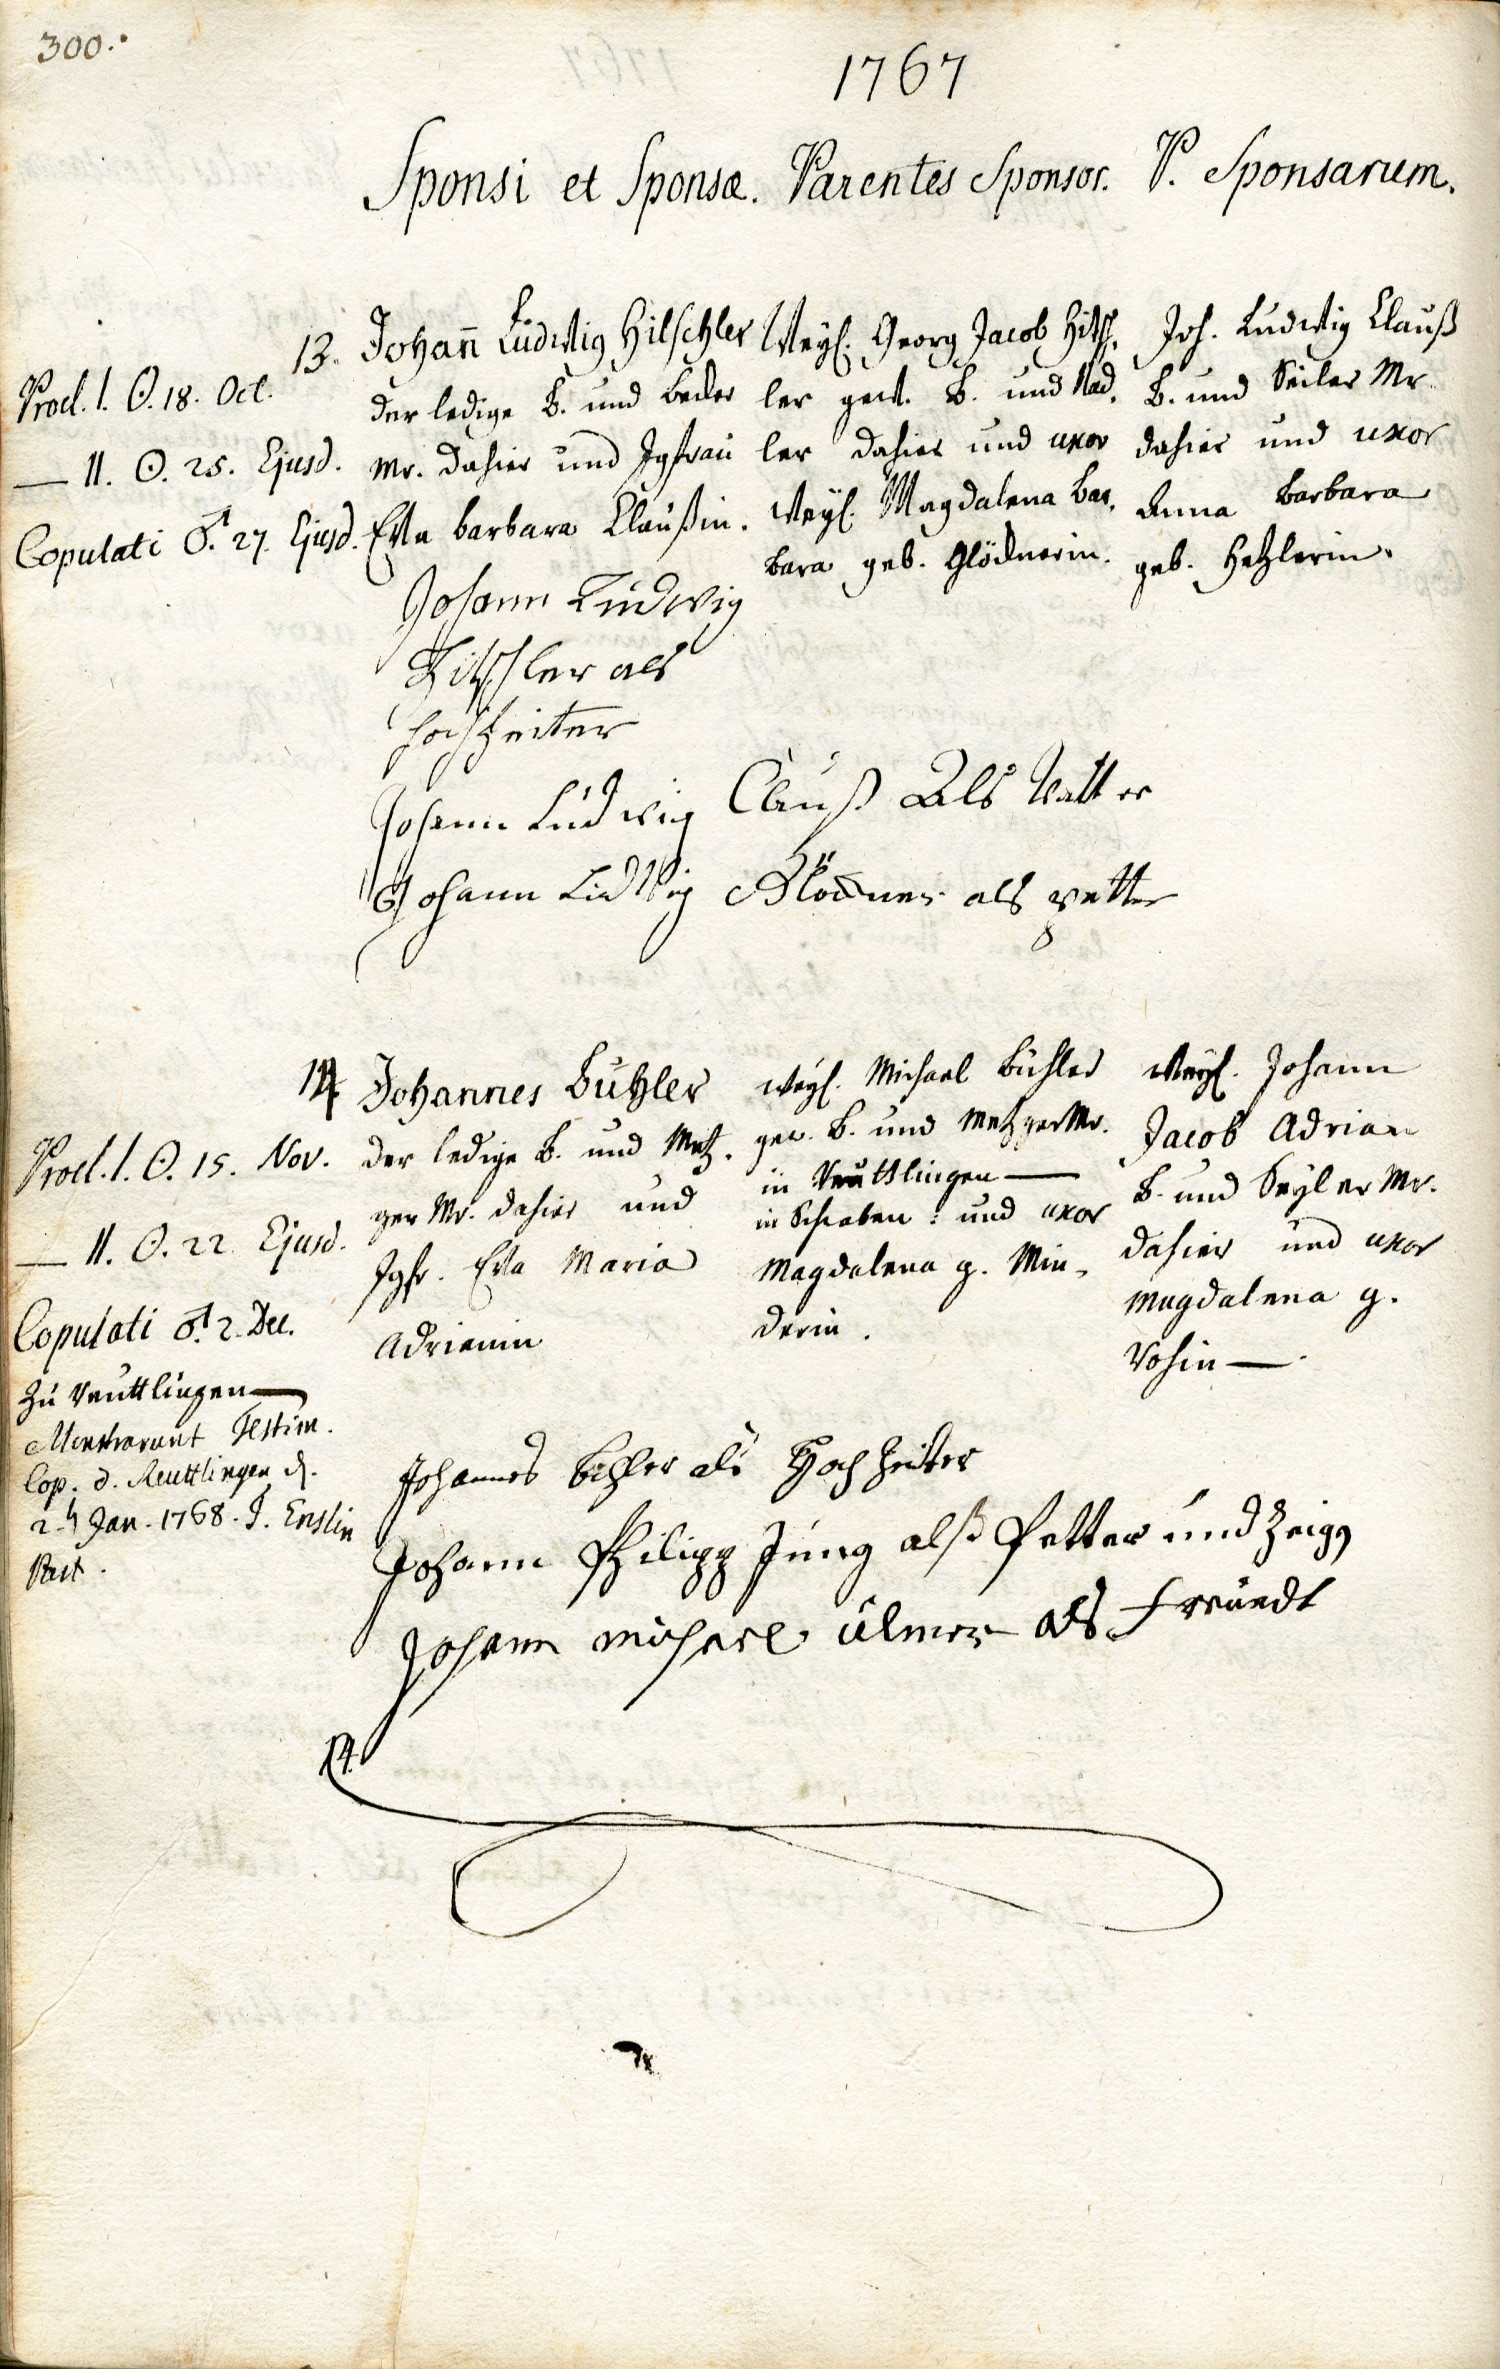 300.
1767
Sponsi et Sponsæ. Parentes Sponsor. P. Sponsarum.
Procl. I. ☉. 18. Oct.
— II. ☉. 25. Ejusd.
Copulati ♂. 27. Ejusd.
13. Johan̄ Ludwig Hitschler
der ledige B. und Becker
Mr. dahier und Jgfrau
Eva Barbara Claußin.
Weyl. Georg Jacob Hitsch.
ler gew. B. und Nad.
ler dahier und uxor
Weyl. Magdalena Bar.
bara geb. Glöcknerin.
Joh. Ludwig Clauß
B. und Seiler Mr.
dahier und uxor
Anna Barbara
geb. Hetzlerin.
Johann Ludwig
Hitschler als
Hochzeiter
Johann Ludwig Clauß Als Vatter
Johann Ludwig Glöckner als vetter
Procl. I. ☉. 15. Nov.
— II. ☉. 22. Ejusd.
Copulati ♂. 2. Dec.
zu Reuttlingen —
Monstrarunt Testim.
Cop. d. Reuttlingen d.
2. Jan. 1768. J. Enslin
Past.
14 Johannes Bühler
der ledige B. und Metz.
ger Mr. dahier und
Jgfr. Eva Maria
Adrianin
Weyl. Michael Bühler
gew. B. und Metzger Mr.
in Reuttlingen —
in Schwaben: und uxor
Magdalena g. Min-
derin.
Weyl. Johann
Jacob Adrian
B. und Seyler Mr.
dahier und uxor
Magdalena g.
Vohin —.
Johannes Bihler als Hochzeiter
Johann Philipp Jung alß Petter und Zeig
Johann Michael Ulmer als Freundt